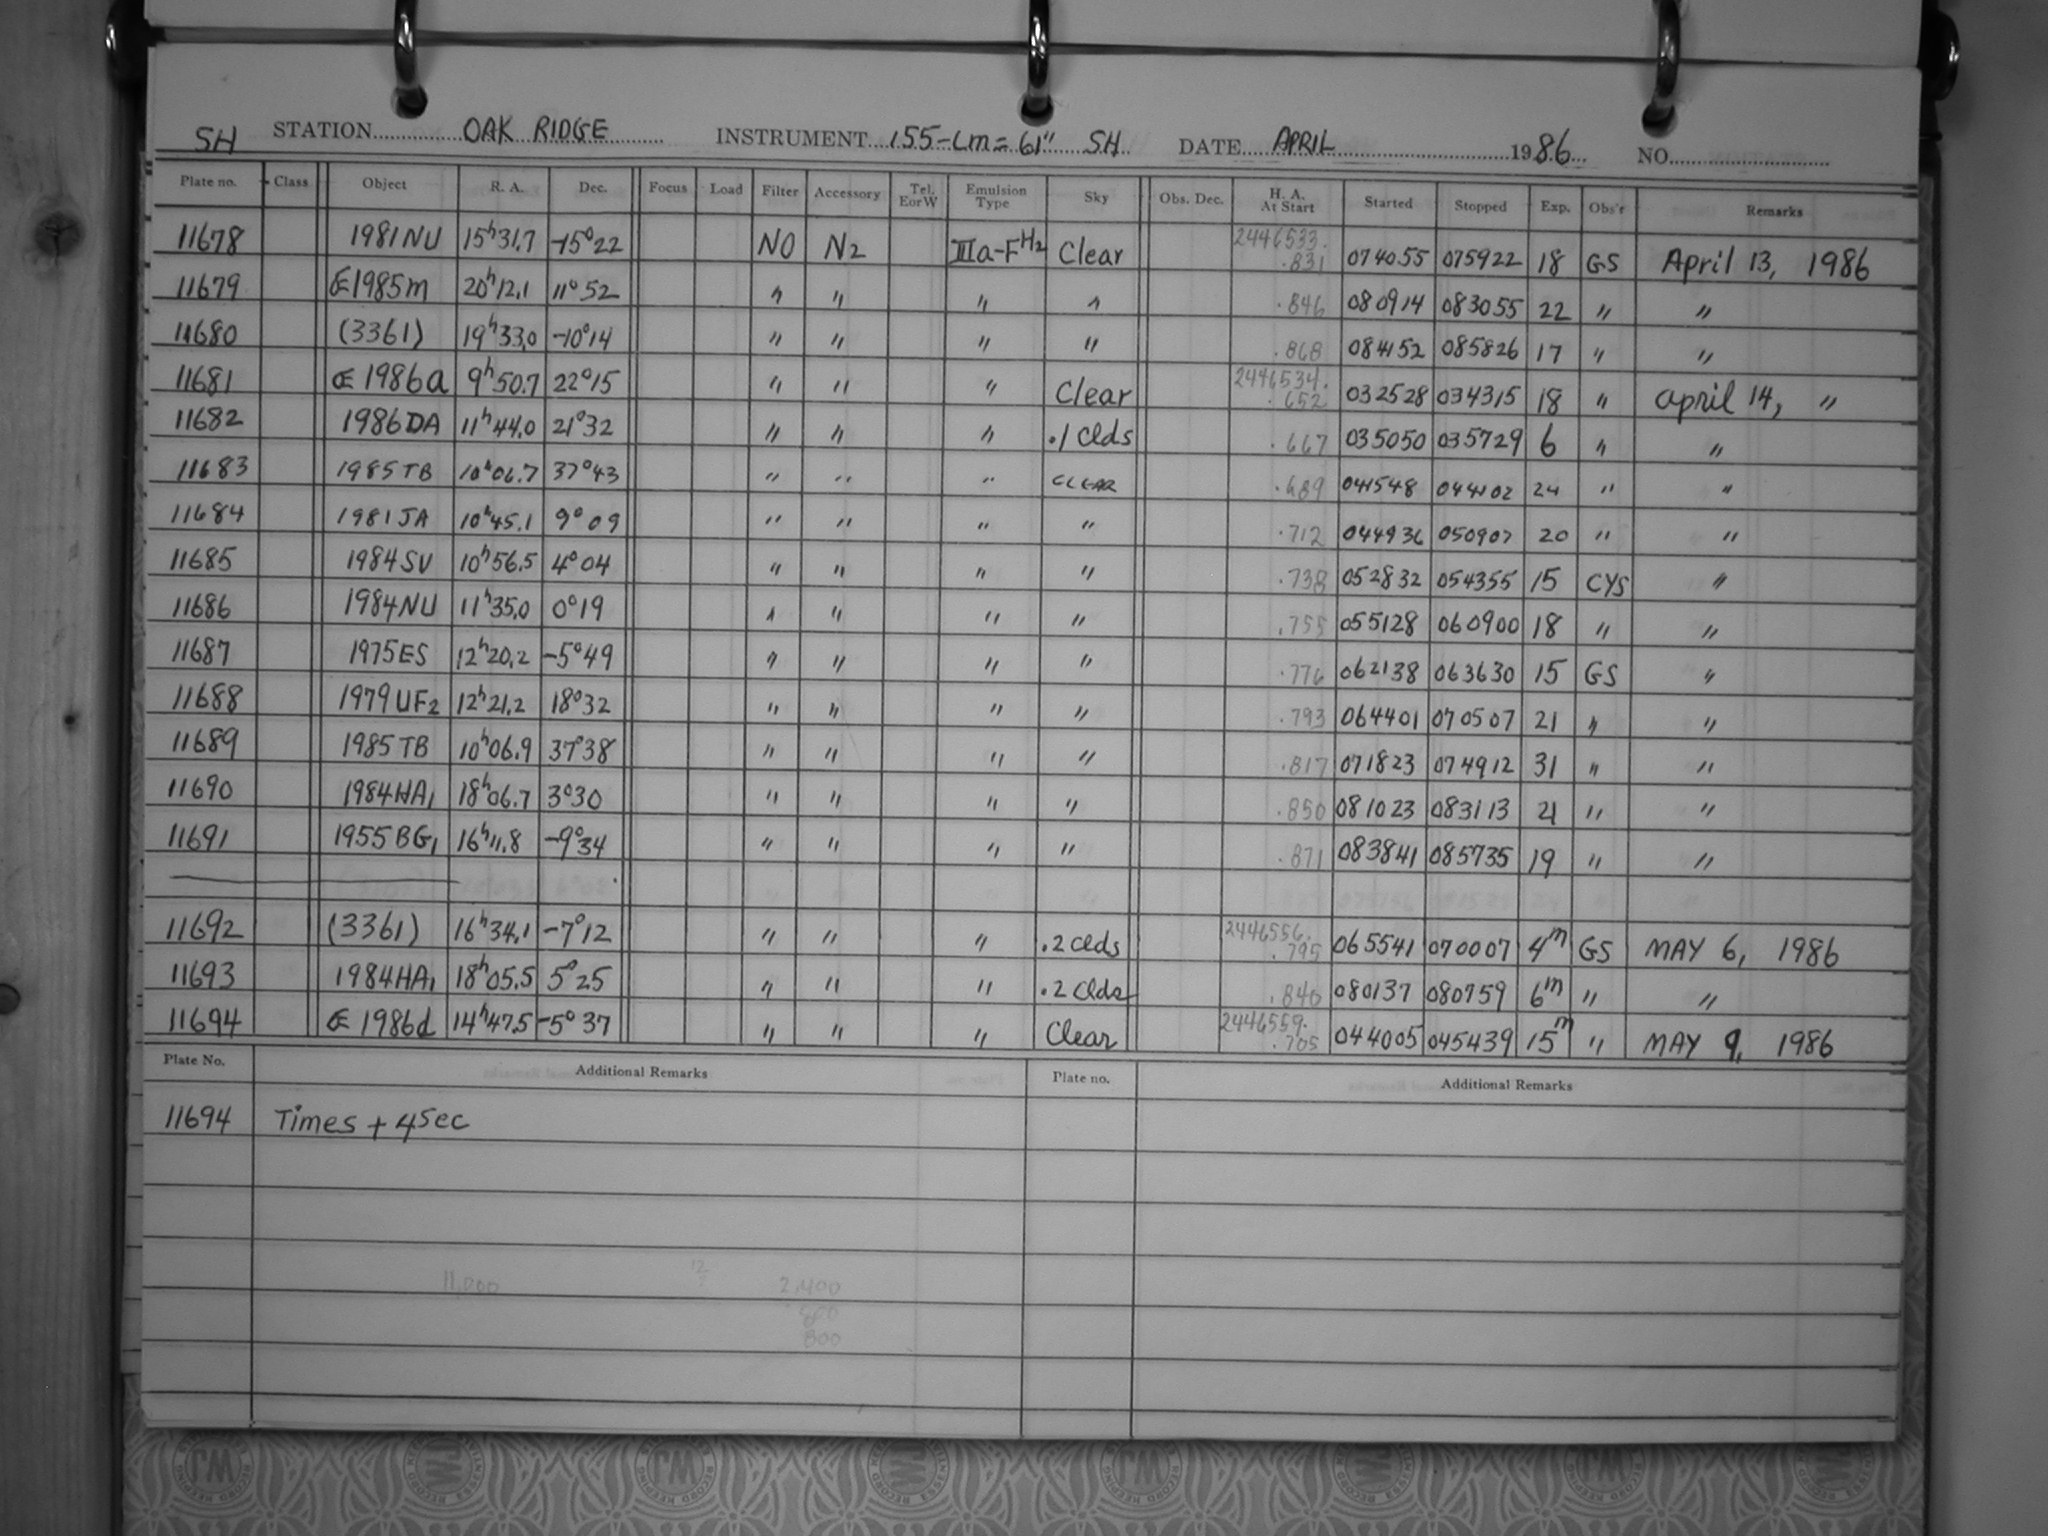 SH STATION OAK RIDGE INSTRUMENT 155-cm = 61" SH DATE APRIL 1986 NO.
Plate no. Class Object R. A. Dec. Focus Load Filter Accessory Tel. E or W Emulsion Type Sky Obs. Dec. H. A. At Start Started Stopped Exp. Obs'r Remarks
11678 1981NU 15h31.7 -15°22 NO N2 IIIa-F H2 Clear 2446533. .831 074055 075922 18 GS April 13, 1986
11679 1985m 20h12.1 11°52 " " " " .846 080914 083055 22 " "
11680 (3361) 19h33.0 -10°14 " " " " .868 084152 085826 17 " "
11681 1986a 9h50.7 22°15 " " " Clear 2446534. .652 032528 034315 18 " April 14, "
11682 1986DA 11h44.0 21°32 " " " .1 Clds .667 035050 035729 6 " "
11683 1985TB 10h06.7 37°43 " " " CLEAR .689 041548 044102 24 " "
11684 1981JA 10h45.1 9°09 " " " " .712 044936 050907 20 " "
11685 1984SV 10h56.5 4°04 " " " " .738 052832 054355 15 CYS "
11686 1984NU 11h35.0 0°19 " " " " .755 055128 060900 18 " "
11687 1975ES 12h20.2 -5°49 " " " " .776 062138 063630 15 GS "
11688 1979UF2 12h21.2 18°32 " " " " .793 064401 070507 21 " "
11689 1985TB 10h06.9 37°38 " " " " .817 071823 074912 31 " "
11690 1984HA1 18h06.7 3°30 " " " " .850 081023 083113 21 " "
11691 1955BG1 16h11.8 -9°34 " " " " .871 083841 085735 19 " "
11692 (3361) 16h34.1 -7°12 " " " .2 Clds 2446556. .795 065541 070007 4m GS MAY 6, 1986
11693 1984HA1 18h05.5 5°25 " " " .2 Clds .840 080137 080759 6m " "
11694 1986d 14h47.5 -5°37 " " " Clear 2446559. .705 044005 045439 15m " MAY 9, 1986
Plate No. Additional Remarks Plate no. Additional Remarks
11694 Times + 4sec
11,000 2,400
800
800